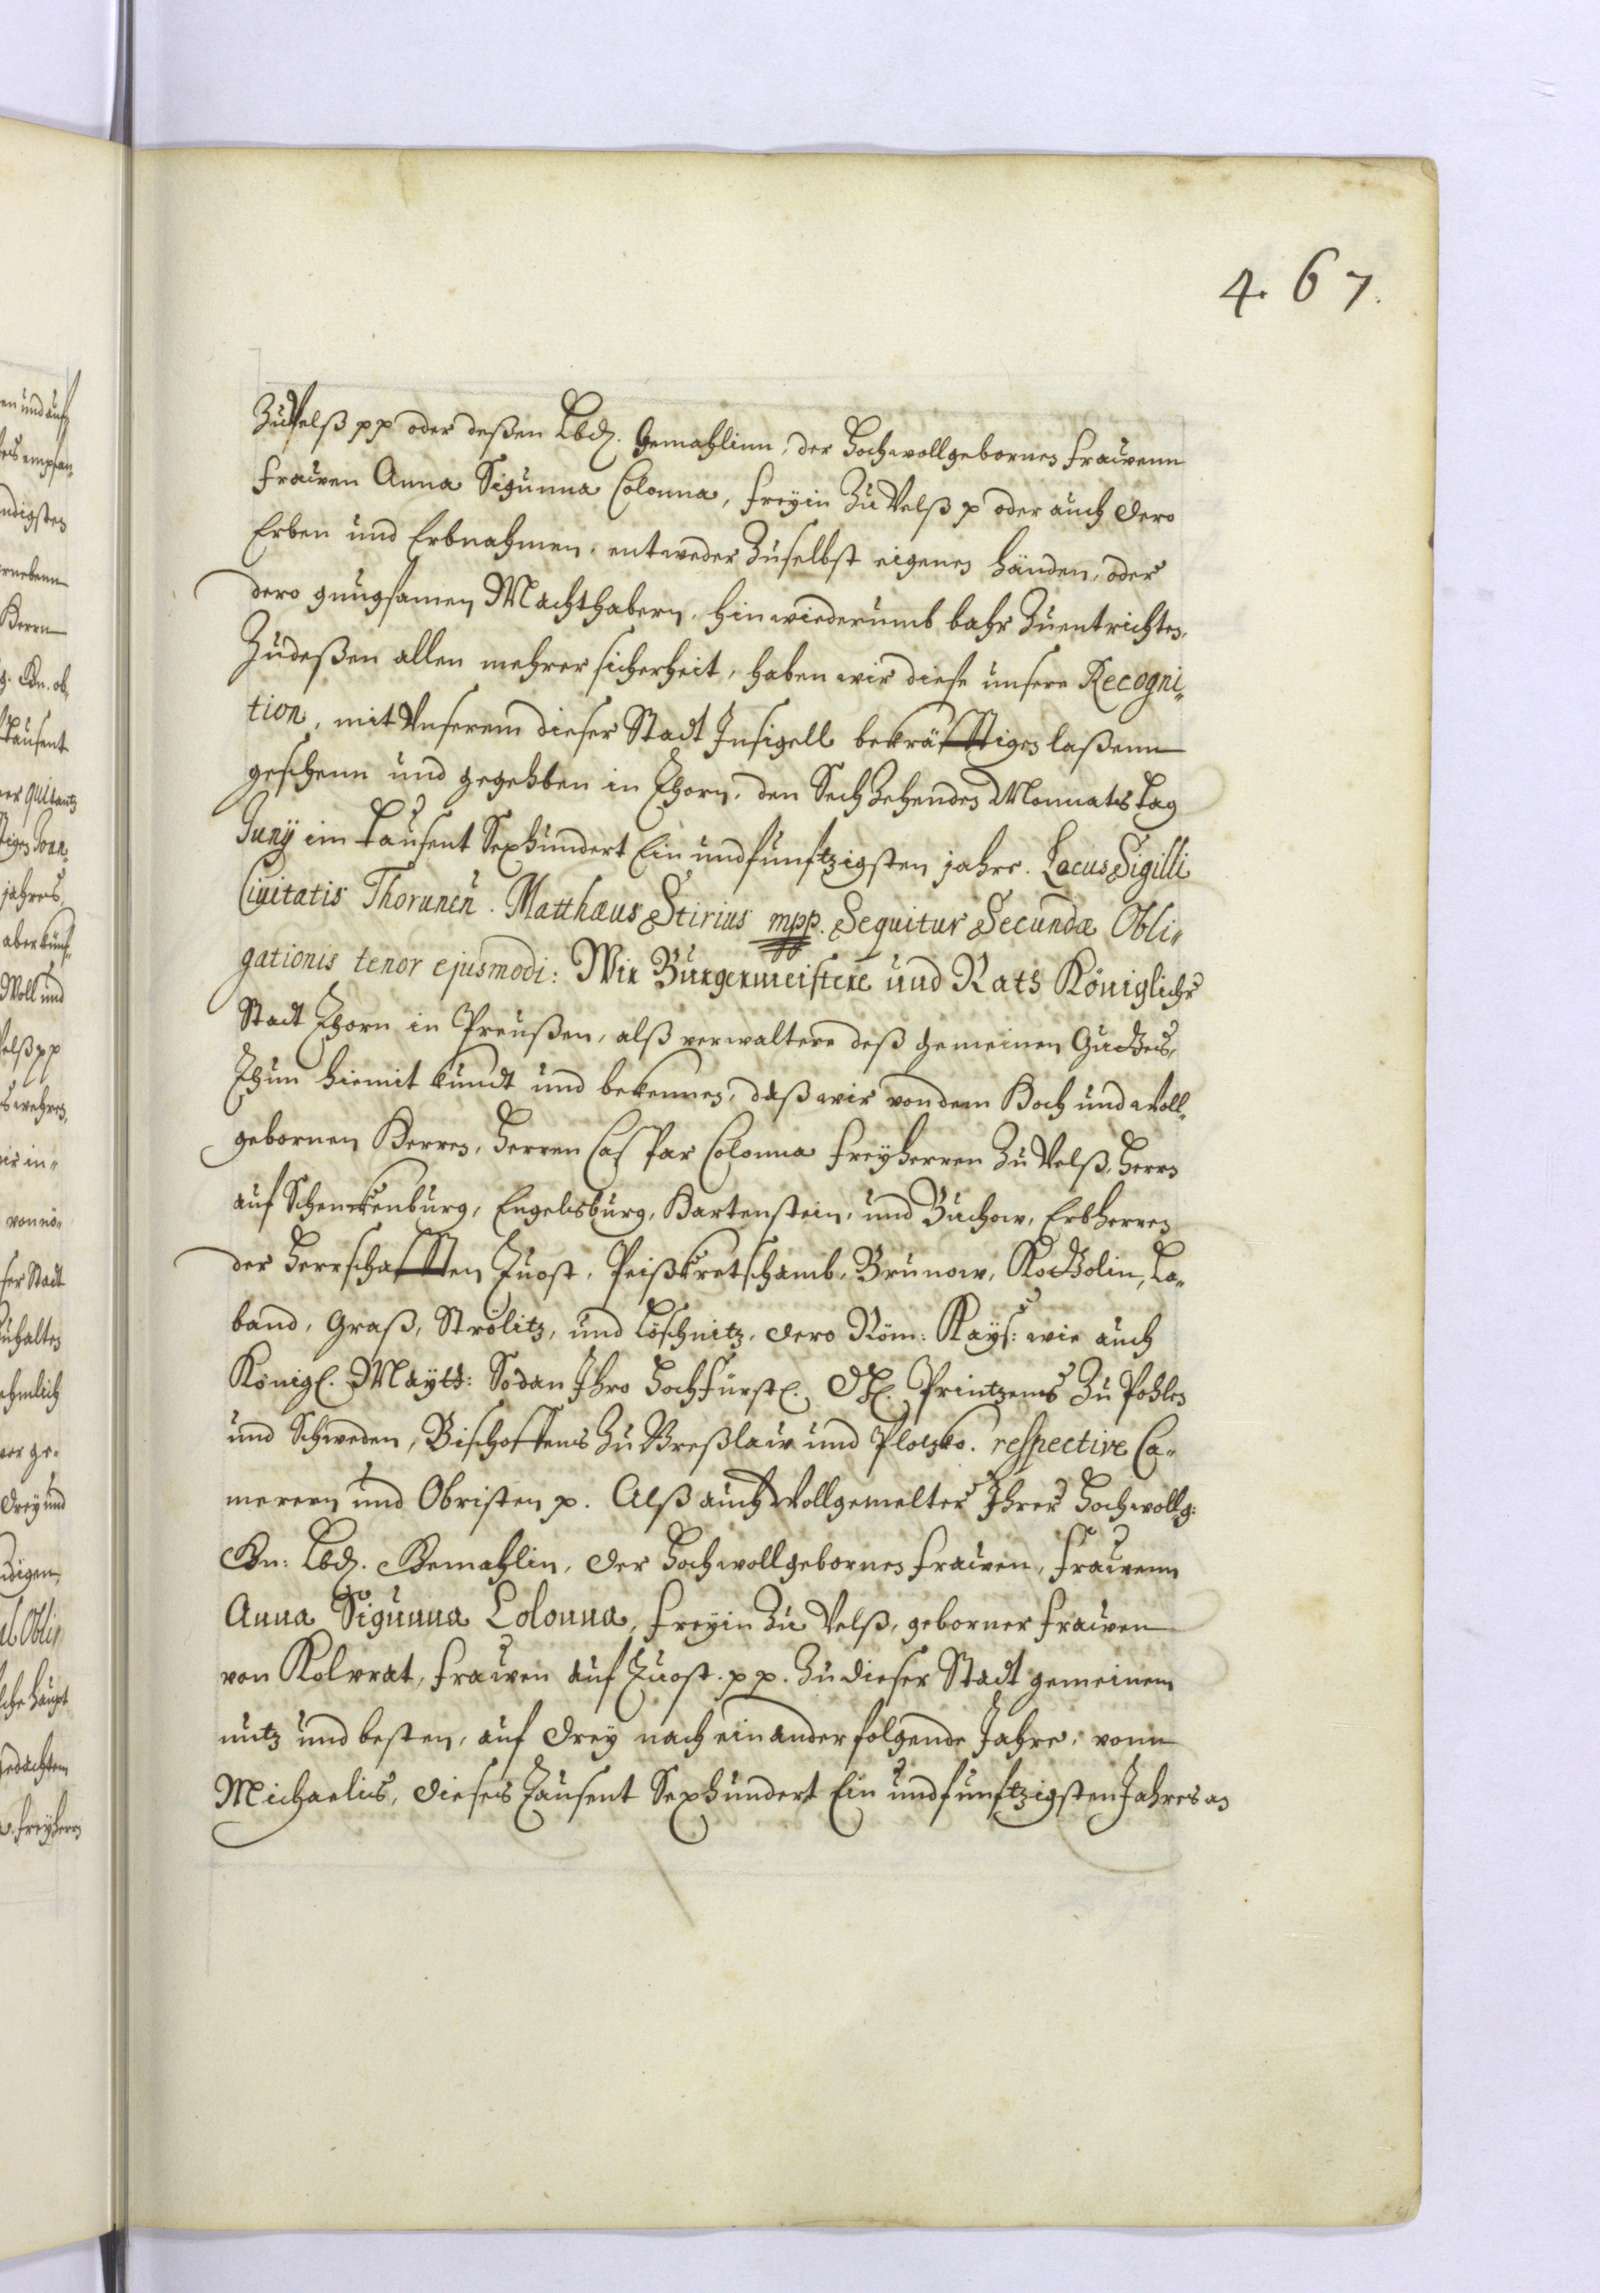 467.
Zu Velß pp oder deßen Lbd. Gemahlinn, der Hochwollgebornen Frawenn
Frawen Anna Sigunna Colonna, Freyin Zu Velß p oder auch dero
Erben und Erbnahmen, entweder Zu selbst eigenen händen, oder
dero gnugsamen Machthabern, hinwiederumb bahr Zuentrichten,
Zudeßen allen mehrer sicherheit, haben wir diese unsere Recogni-
tion, mit Unserem dieser Stadt Insigell bekräfftigen laßenn
geschenn und gegehben in Thorn, den Sechzehenden Monnats tag
Junÿ im tausent Sexhundert Ein undfunfftzigsten jahre. Locus Sigilli
Civitatis Thorunen. Matthæus Stirius mpp. Sequitur Secundæ Obli-
gationis tenor ejusmodi: Wir Bürgermeistere und Rats Königlicher
Stadt Thorn in Preußen, alß verwaltere deß gemeinen Guthes,
Thun hiemit kundt und bekennen, daß wir von dem Hoch und Woll-
gebornen Herren, Herren Caspar Colonna Freyherren Zu Velß, Herrn
auf Schenckenburg, Engelsburg, Hartenstein, und Buchow, Erbherren
der Herrschafften Tuost, Peißkretschamb, Brunow, Kotholin, La-
band, Graß, Strölitz, und Löschnitz, dero Röm: Kays: wie auch
Königl. Maytt: Sodan Ihro Hochfürstl. Dl. Printzens Zu Pohlen
und Schweden, Bischoffens Zu Breßlaw und Plozko. respective Ca-
merern und Obristen p. Alß auch Wollgemelter Ihrer Hochwollg:
Gn: Lbd. Gemahlin, der Hochwollgebornen Frawen, Frawenn
Anna Sigunna Colonna, Freyin Zu Velß, geborner Frawen
von Kolvrat, Frawen auf Tuost. pp. Zu dieser Stadt gemeinem
nutz und besten, auf drey nach einander folgende Jahre, vonn
Michaelis, dieses Tausent Sexhundert Ein undfunfftzigsten Jahres an